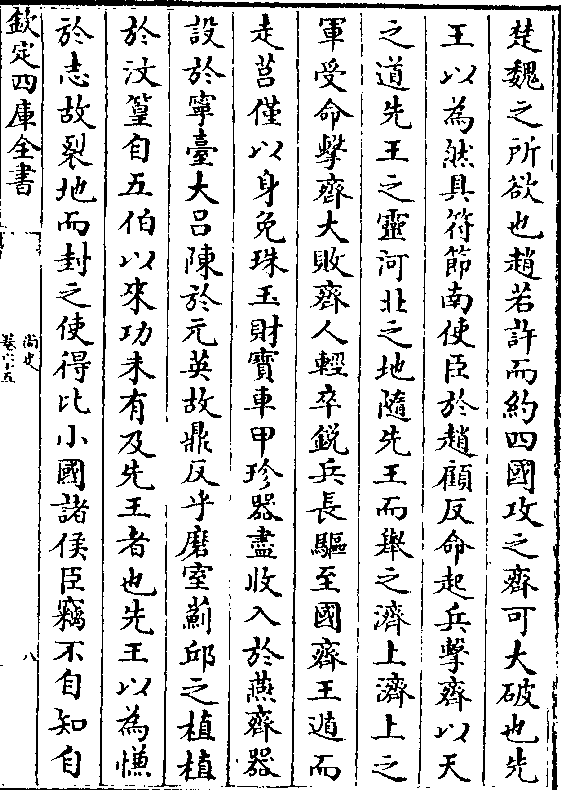 楚魏之所欲也趙若許而約四國攻之齊可大破也先
王以為然具符節南使臣於趙顧反命起兵擊齊以天
之道先王之靈河北之地隨先王而舉之濟上濟上之
軍受命擊齊大敗齊人輕卒鋭兵長驅至國齊王遁而
走莒僅以身免珠玉財寶車甲珍器盡收入於燕齊器
設於寧臺大吕陳於元英故鼎反乎磨室薊邱之植植
於汶篁自五伯以來功未有及先王者也先王以為慊
於志故裂地而封之使得比小國諸侯臣竊不自知自
欽定四庫全書
尚史
卷六十五
八